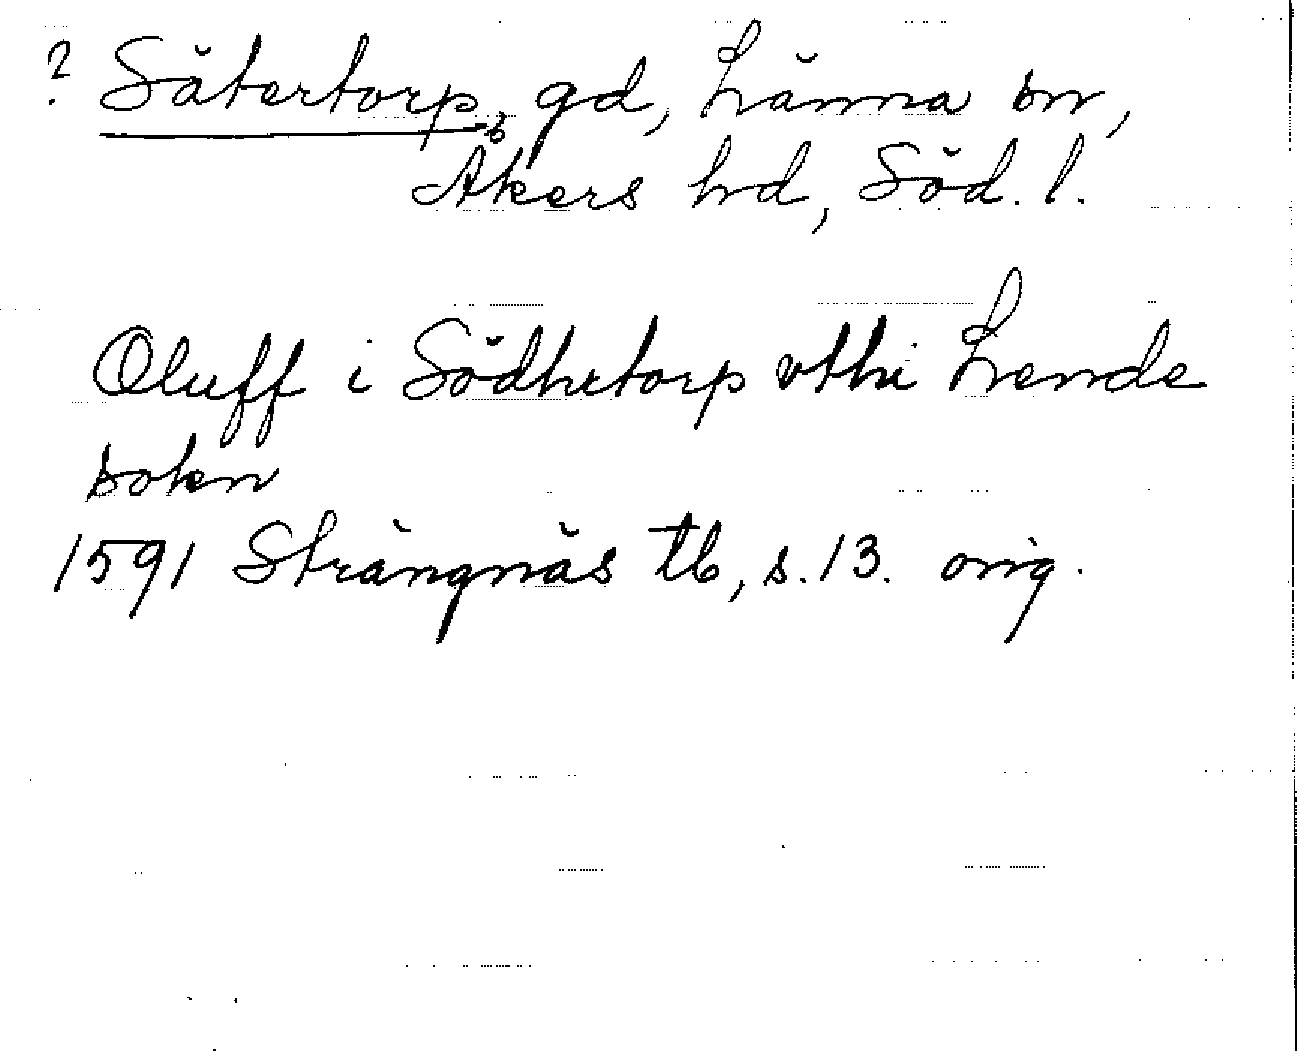 ? Sätertorp, gd, Länna sn,
Åkers hd, Söd. l.
Oluff i Södhrtorp vthi Lende
sokn
1591 Strängnäs tb, s. 13. orig.